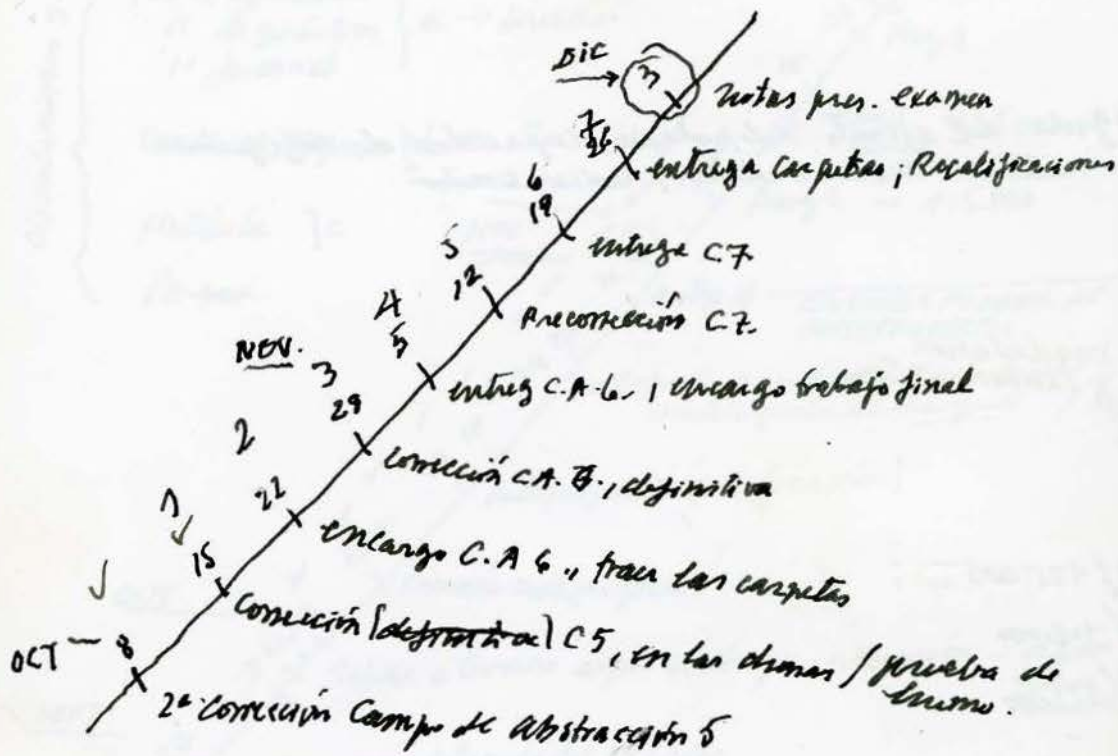 DIC → 3 notas pres. examen
7 26 entrega carpetas ; Recalificaciones
6 19 entrega C7
5 12 Precorrección C.7.
NOV. 4 5 entreg C.A.6. , encargo trabajo final
3 29 corrección C.A. 6., definitiva
2 22 encargo C.A 6 ., traer las carpetas
1 15 Corrección (definitiva) C5, en las / prueba de humo.
OCT — 8 2ª Corrección Campo de abstracción 5